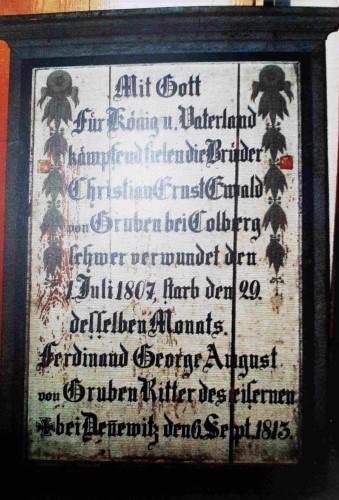 Mit Gott
Für König u. Vaterland
kämpfend fielen die Brüder
Christian Ernst Ewald
von Gruben bei Colberg
schwer verwundet den
1. Juli 1807, starb den 29.
desselben Monats.
Ferdinand George August
von Gruben Ritter des eisernen
✠ bei Deñewitz den 6. Sept. 1813.